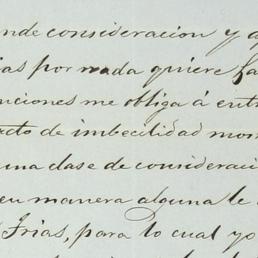 nde consideracion y a
ias por nada quiere ha
nciones me obliga á entr
acto de imbecilidad mor
una clase de consideraci
en manera alguna le
Frias, para lo cual yo